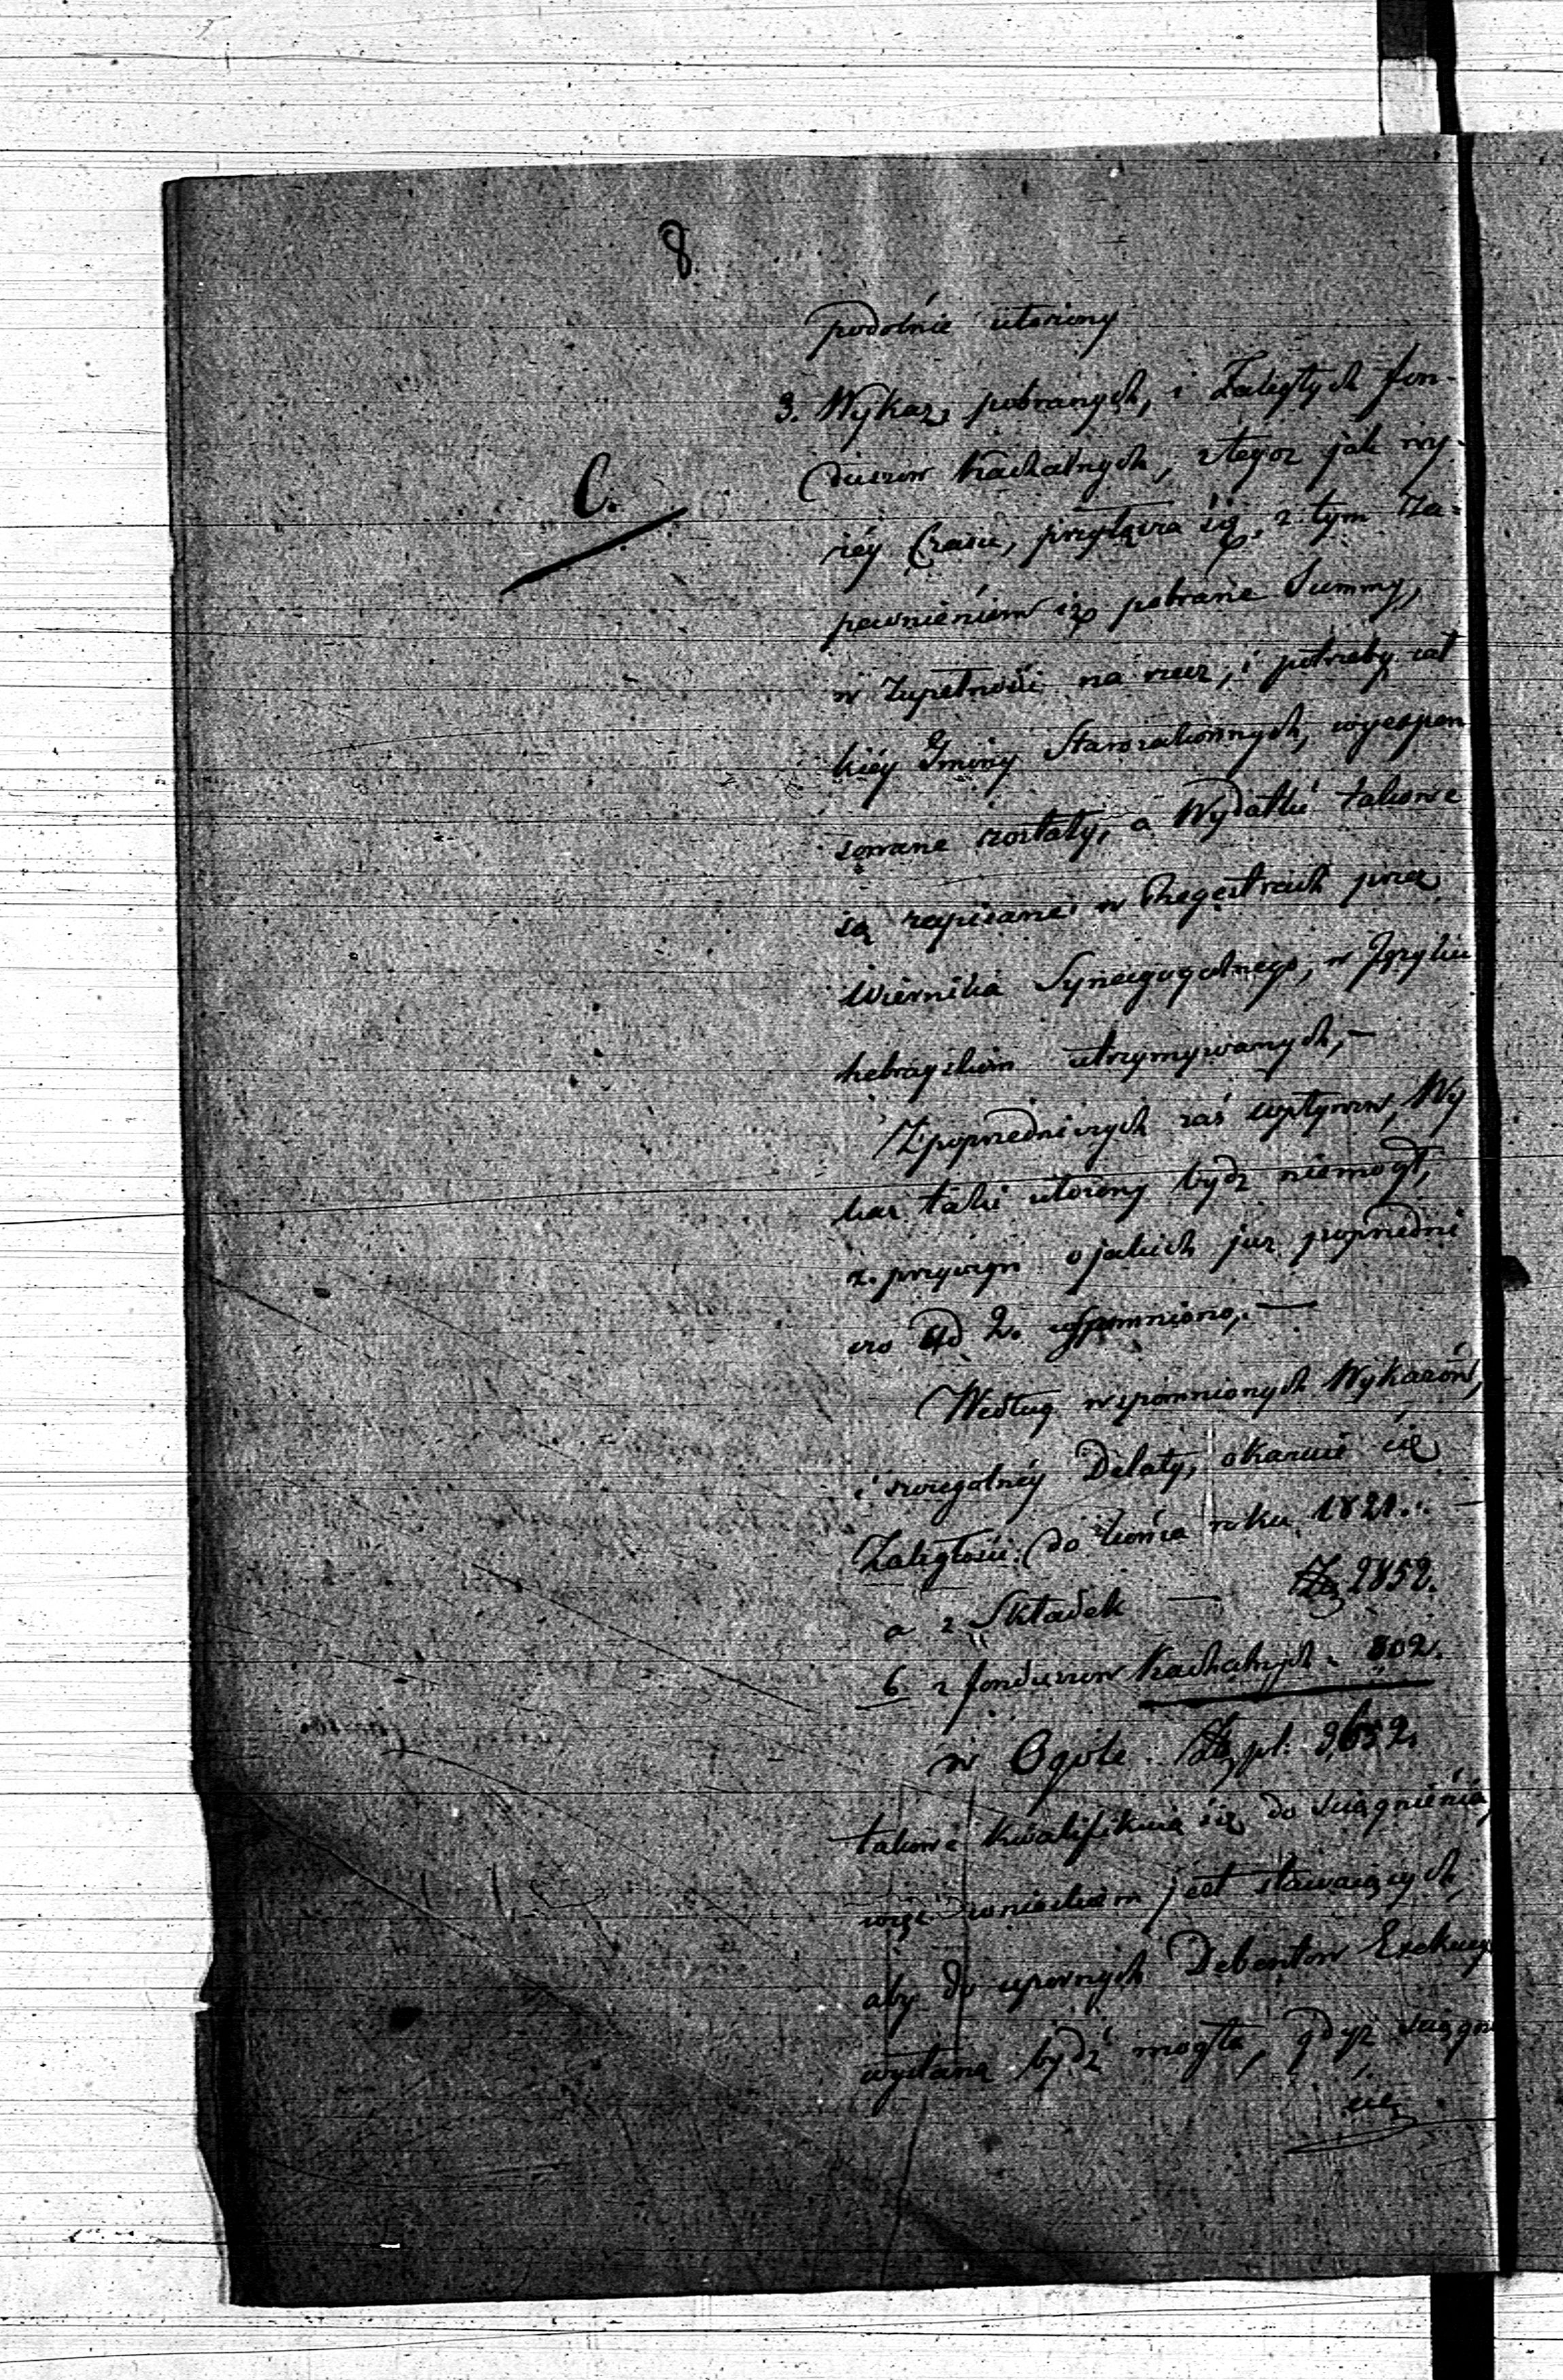 8
podobnie ułożony
C.
3. Wykaz, pobranych, i Zaległych fon-
duszow Kachalnych, z tegoz jak wy-
żéy Czasu, przyłącza się, z tym Za-
pewnieniem iż pobrane Summy,
w Zupełności na rzecz, i potrzeby cał
kiéy Gminy Starozakonnych, wyexpen
sowane zostały, a Wydatki takowe
są zapisane w Regestrach przez
Wiernika Synagogalnego, w Języku
hebrayskim utrzymywanych, —
Z poprzedniczych zaś wpływow, Wy
kaz taki ułożony bydz niemogł,
z. przyczyn o jakich juz poprzedni
czo ad 2. wspomniono, —
Według wspomnionych Wykazów,
i szczegolnéy Delaty, okazuie się
Zaległości do końca roku 1821.
a z Składek — 2852.
b z funduszow Kachalnych „ 802.
w Ogóle Zł. pl. 3652.
takowe kwalifikuią się do sciągnienia,
więc wnioskiem jest stawaiących,
aby do upornych Debentow Exekucya
wysłaną bydź mogła, gdyz sciągni